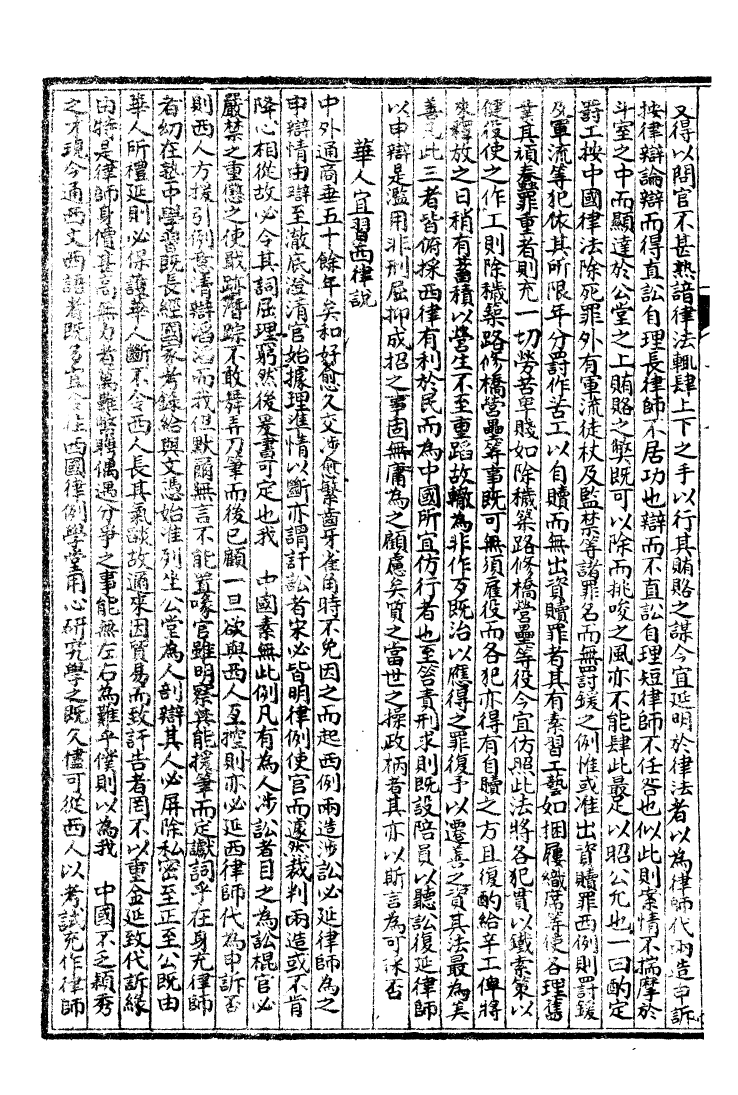 又得以問官不甚熟諳律法輒肆上下之手以行其賄賂之謀今宜延明於律法者以為律師代兩造申訴
按律辯論辯而得直訟自理長律師不居功也辯而不直訟自理短律師不任咎也似此則案情不揣摩於
斗室之中而顯達於公堂之上賄賂之獘既可以除而挑唆之風亦不能肆此最足以昭公允也一曰酌定
罸工按中國律法除死罪外有軍流徒杖及監禁等諸罪名而無罸鍰之例惟或准出資贖罪西例則罸鍰
及軍流等犯依其所限年分罸作苦工以自贖而無出資贖罪者其有素習工藝如捆屨織席等使各理舊
業其頑蠢罪重者則充一切勞苦卑賤如除穢築路修橋營壘等役今宜仿照此法將各犯貫以鐵索策以
健役使之作工則除穢築路修橋營壘等事既可無須雇役而各犯亦得有自贖之方且復酌給辛工俾將
來釋放之日稍有蓄積以營生不至重蹈故轍為非作歹既治以應得之罪復予以遷善之資其法最為美
善凡此三者皆俯採西律有利於民而為中國所宜仿行者也至笞責刑求則既設陪員以聽訟復延律師
以申辯是濫用非刑屈抑成招之事固無庸為之顧慮矣質之當世之操政柄者其亦以斯言為可採否
華人宜習西律說
中外通商垂五十餘年矣和好愈久交涉愈繁齒牙雀角時不免因之而起西例兩造涉訟必延律師為之
申辯情由辯至澈底澄清官始據理準情以斷亦謂訐訟者宋必皆明律例使官而遽然裁判兩造或不肯
降心相從故必令其詞屈理窮然後爰書可定也我 中國素無此例凡有為人涉訟者目之為訟棍官必
嚴禁之重懲之使戢跡潛踪不敢舞弄刀筆而後已顧一旦欲與西人互控則亦必延西律師代為申訴否
則西人方援引例意清辯滔滔而我但默爾無言不能置喙官雖明察其能援筆而定讞詞乎在身充律師
者幼在塾中學習既長經國家考錄給與文憑始准列坐公堂為人剖辯其人必屏除私密至正至公既由
華人所禮延則必保護華人斷不令西人長其氣燄故邇來因貿易而致訐告者罔不以重金延致代訴緣
由特是律師身價甚高無力者萬難緊聘偶遇分爭之事能無左右為難乎僕則以為我 中國不乏穎秀
之才現今通西文西語者既多宜令往西國律例學堂用心研究學之既久儘可從西人以考試充作律師